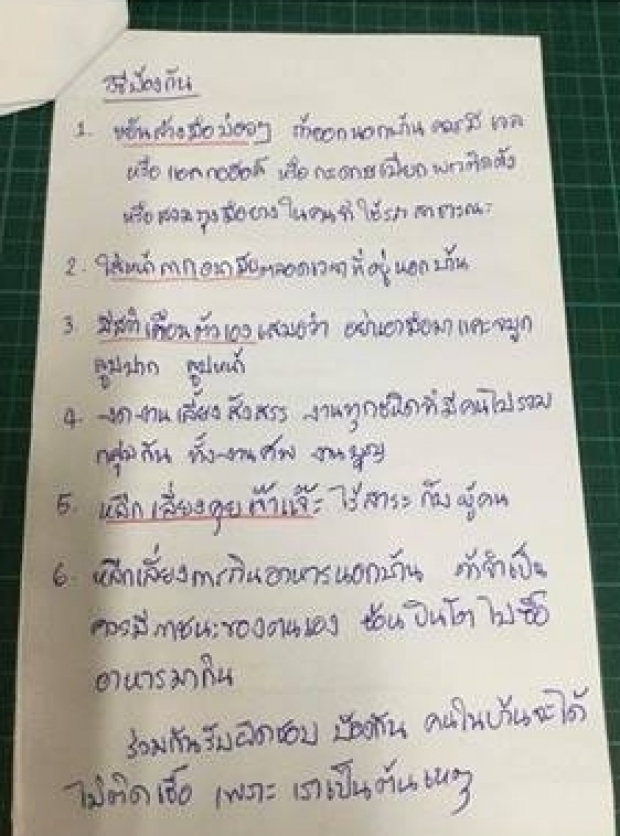 วิธีป้องกัน
1. หมั่นล้างมือบ่อยๆ ถ้าออกนอกบ้าน ควรมี เจล
หรือ แอลกอฮอล์ หรือ กระดาษเปียก พกติดตัว
หรือสวมถุงมือยาง ในคนที่ใช้รถสาธารณะ
2. ใส่หน้ากากอนามัยตลอดเวลาที่อยู่นอกบ้าน
3. มีสติเตือนตัวเองเสมอว่า อย่าเอามือมาแคะจมูก
ลูบปาก ลูบหน้า
4. งดงานเลี้ยงสังสรร งานทุกชนิดที่มีคนไปรวม
กลุ่มกัน ทั้งงานศพ งานบุญ
5. หลีกเลี่ยงคุยจ๊ะจ๋า ไร้สาระ กับผู้คน
6. หลีกเลี่ยงการกินอาหารนอกบ้าน ถ้าจำเป็น
ควรมีภาชนะของตนเอง ช้อน ปิ่นโต ไปซื้อ
อาหารมากิน
ร่วมกันรับผิดชอบ ป้องกัน คนในบ้านจะได้
ไม่ติดเชื้อ เพราะ เราเป็นต้นเหตุ